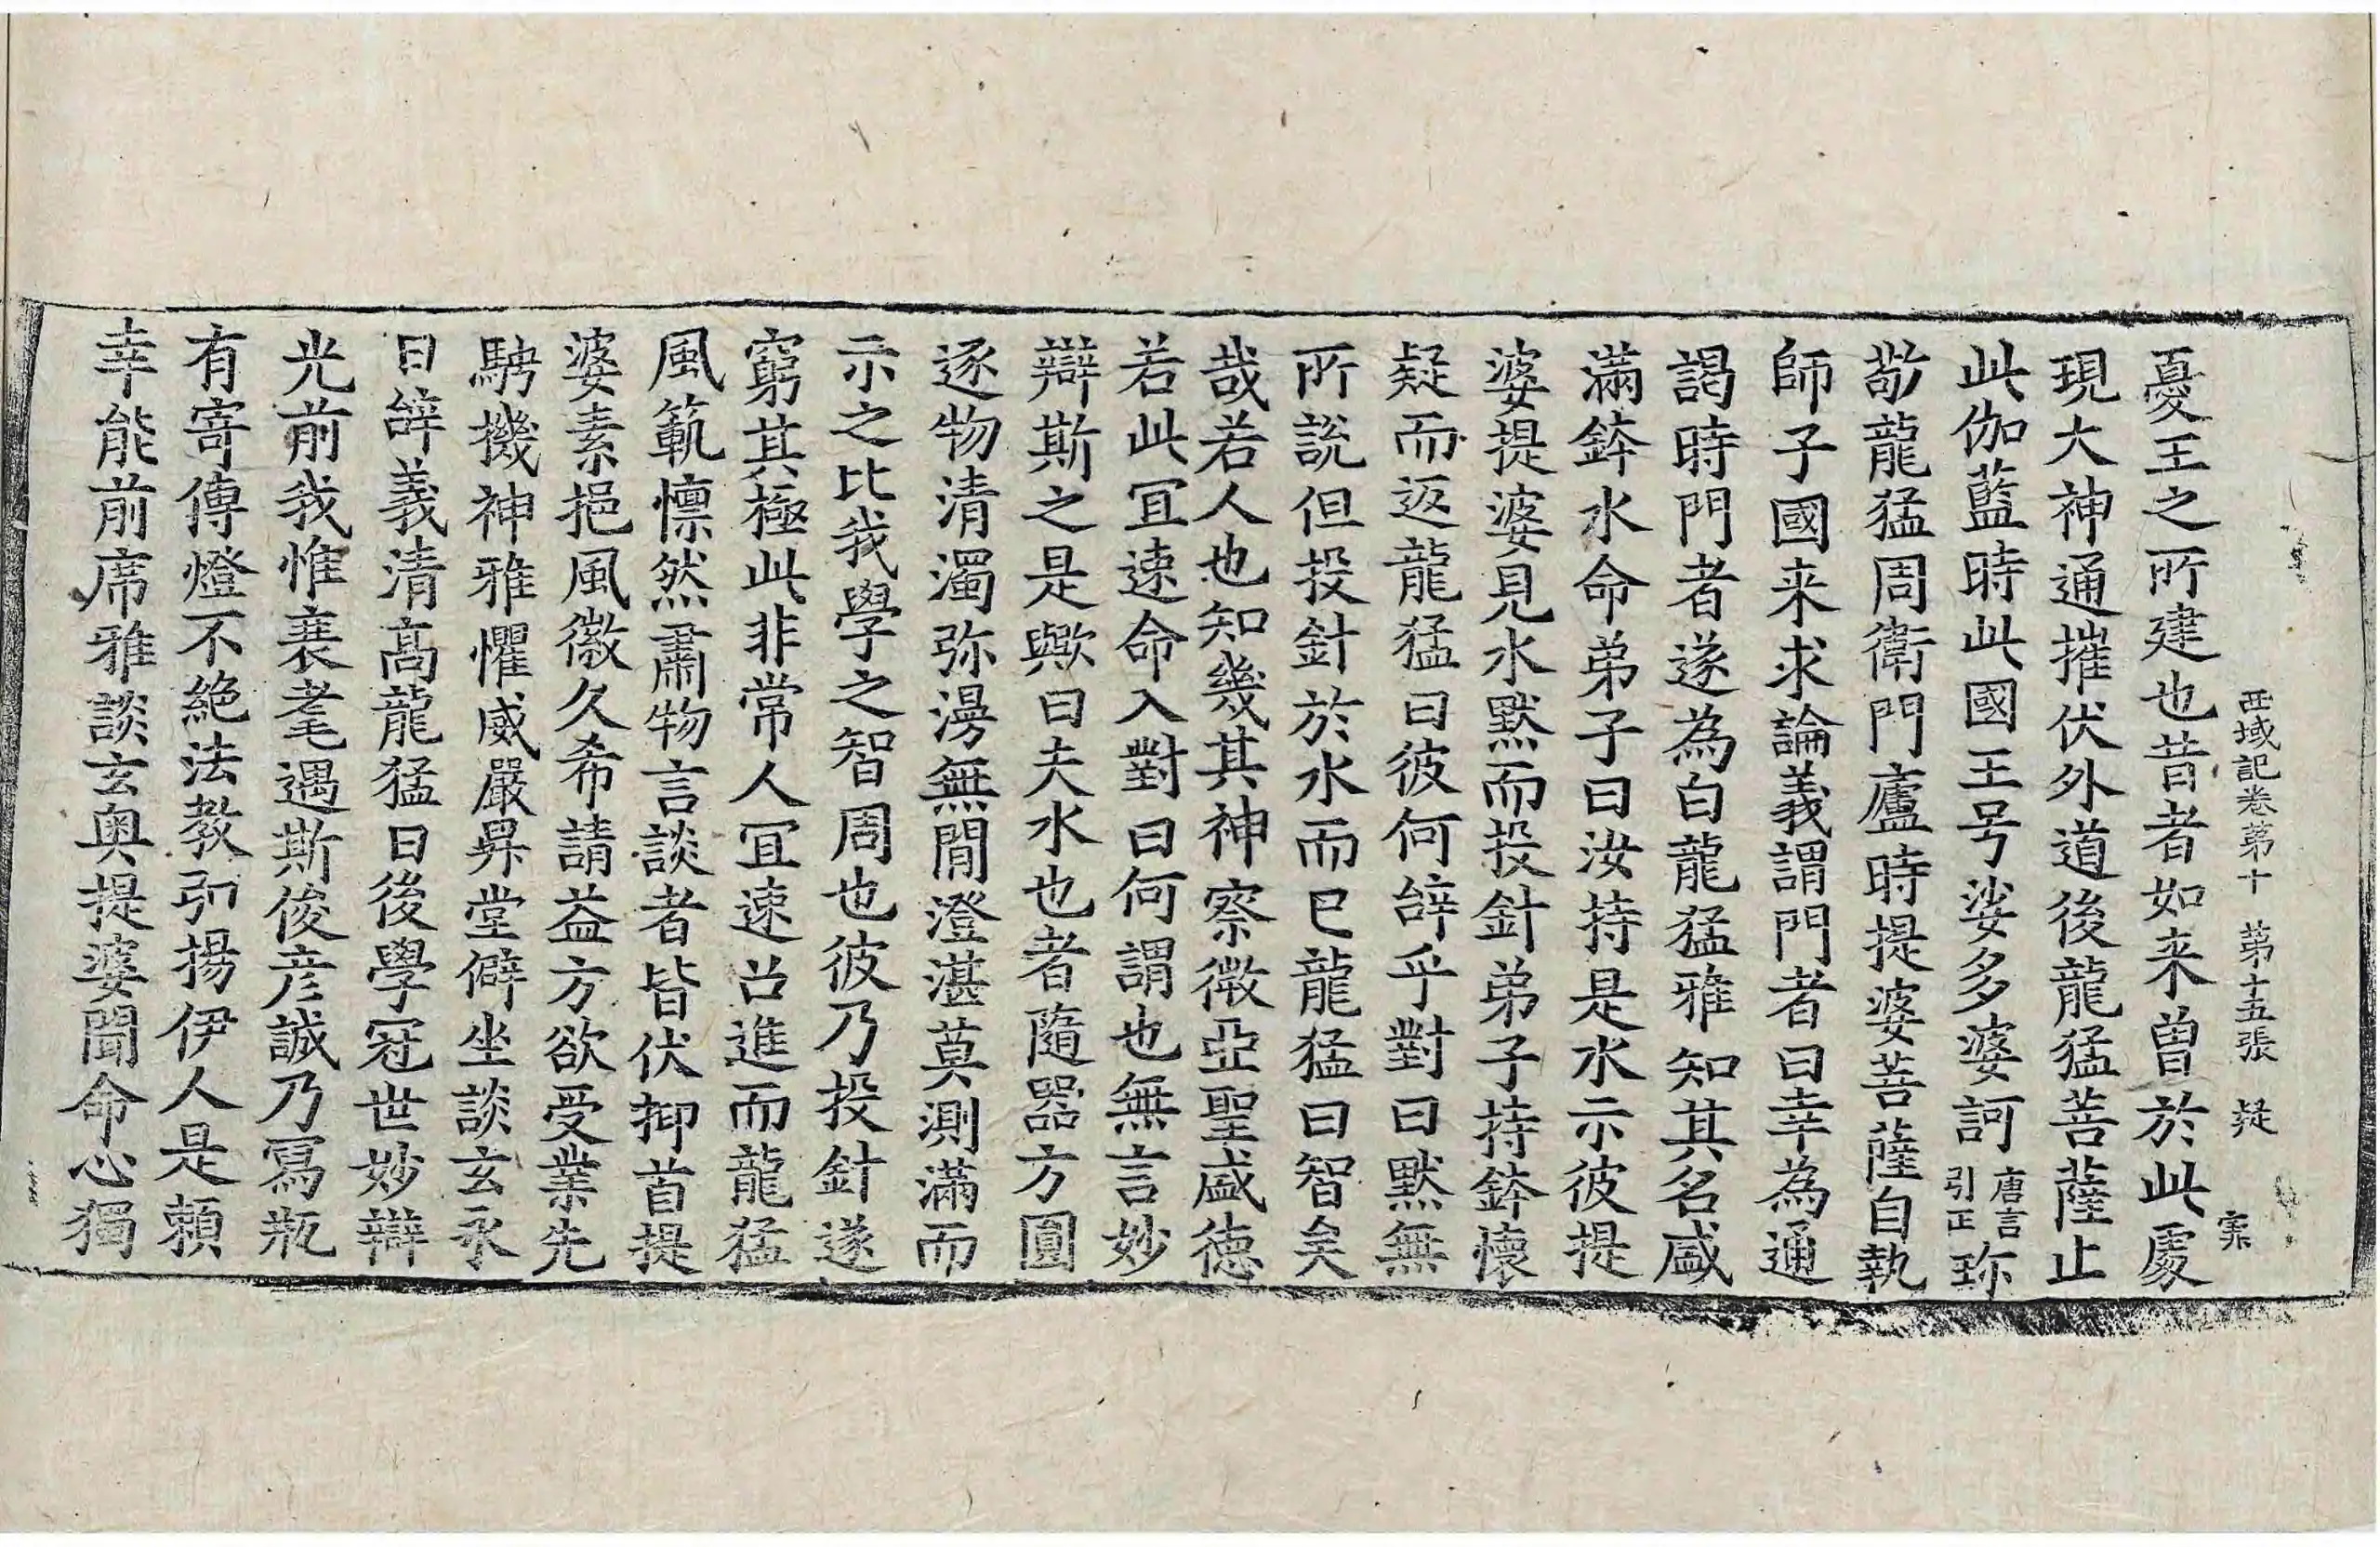 西域記卷第十 第十五張 疑
憂王之所建也昔者如来曽於此處
現大神通摧伏外道後龍猛菩薩止
此伽藍時此國王号娑多婆訶唐言引正珎
敬龍猛周衛門廬時提婆菩薩自執
師子國来求論義謂門者曰幸為通
謁時門者遂為白龍猛雅知其名盛
滿鉢水命弟子曰汝持是水示彼提
婆提婆見水默而投針弟子持鉢懷
疑而返龍猛曰彼何辝乎對曰默無
所說但投針於水而已龍猛曰智矣
哉若人也知幾其神察微亞聖盛德
若此冝速命入對曰何謂也無言妙
辯斯之是歟曰夫水也者隨器方圓
逐物清濁弥漫無間澄湛莫測滿而
示之比我學之智周也彼乃投針遂
窮其極此非常人冝速召進而龍猛
風範懍然肅物言談者皆伏抑首提
婆素挹風徽久希請益方欲受業先
騁機神雅懼威嚴昇堂僻坐談玄永
日辝義清高龍猛曰後學冠世妙辯
光前我惟衰耄遇斯俊彦誠乃寫瓶
有寄傳燈不絶法教弘揚伊人是頼
幸能前席雅談玄奥提婆聞命心獨